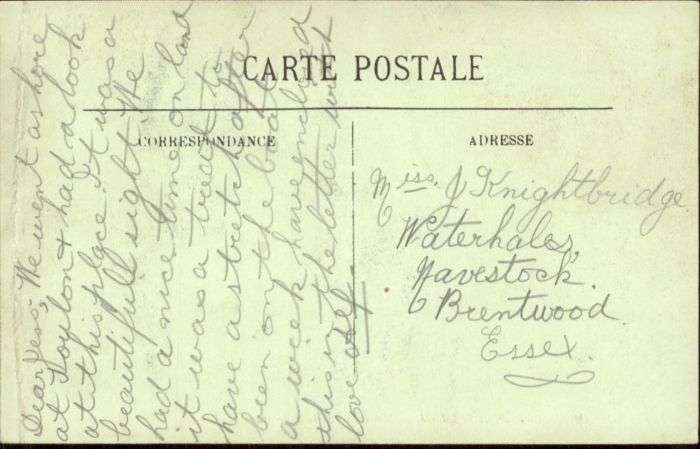 CARTE POSTALE
CORRESPONDANCE
ADRESSE
Dear Jess, We went ashore
at Toulon & had a look
at this place. It was a
beautifull sight. We
had a nice time on land
it was a treat to
have a stretch after
been on the boat
a week have enclosed
this in the letter with
love
Miss. J Knightbridge
Waterhales,
Navestock.
Brentwood.
Essex.